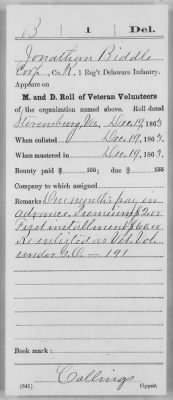 B 1 Del.
Jonathan Biddle
Corp, Co. K, 1 Reg't Delaware Infantry.
Appears on
M. and D. Roll of Veteran Volunteers
of the organization named above. Roll dated
Stevensburg, Va, Dec. 19, 1863
When enlisted Dec. 19, 1863.
When mustered in Dec. 19, 1863.
Bounty paid $ 100; due $ 100
Company to which assigned
Remarks One month's pay in
advance. Premium $2.00
First installment $60.00
Re enlisted as Vet. Vol.
under G.O. — 191
Book mark:
(341) Collings
Copyist.